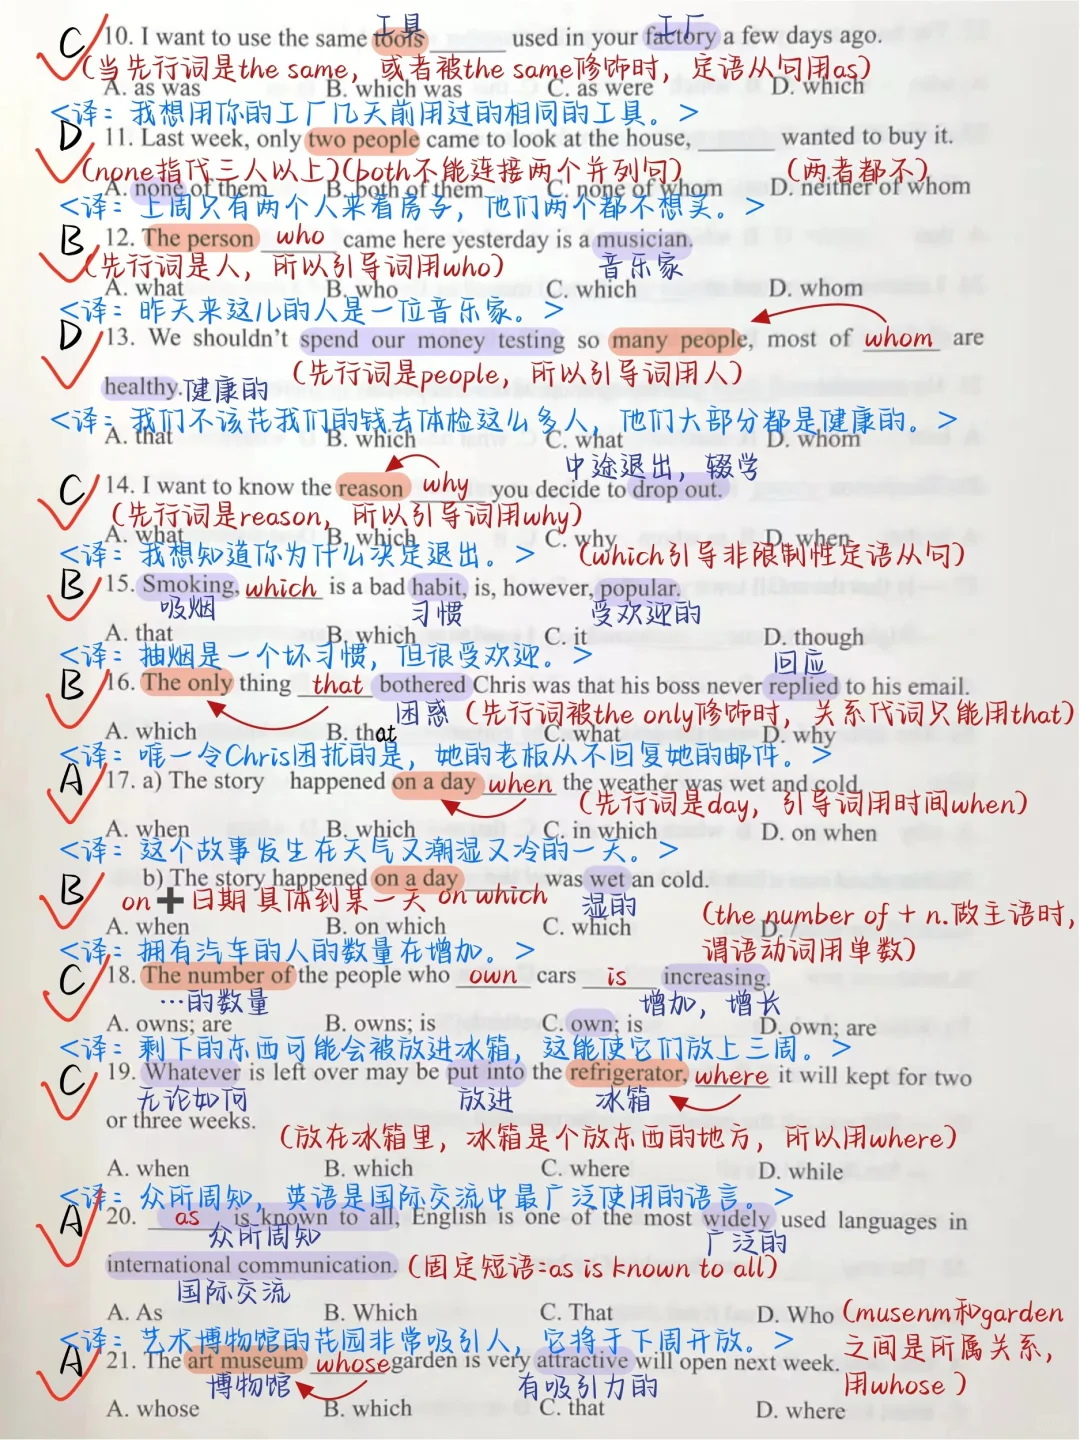 工具 工厂
C 10. I want to use the same tools ______ used in your factory a few days ago.
(当先行词是the same，或者被the same修饰时，定语从句用as)
A. as was B. which was C. as were D. which
<译：我想用你的工厂几天前用过的相同的工具。>
D 11. Last week, only two people came to look at the house, ______ wanted to buy it.
(none指代三人以上)(both不能连接两个并列句) (两者都不)
A. none of them B. both of them C. none of whom D. neither of whom
<译：上周只有两个人来看房子，他们两个都不想买。>
B 12. The person who came here yesterday is a musician.
(先行词是人，所以引导词用who) 音乐家
A. what B. who C. which D. whom
<译：昨天来这儿的人是一位音乐家。>
D 13. We shouldn't spend our money testing so many people, most of whom are
healthy. 健康的 (先行词是people，所以引导词用人)
<译：我们不该花我们的钱去体检这么多人，他们大部分都是健康的。>
A. that B. which C. what D. whom
中途退出，辍学
C 14. I want to know the reason why you decide to drop out.
(先行词是reason，所以引导词用why)
A. what B. which C. why D. when
<译：我想知道你为什么决定退出。> (which引导非限制性定语从句)
B 15. Smoking, which is a bad habit, is, however, popular.
吸烟 习惯 受欢迎的
A. that B. which C. it D. though
<译：抽烟是一个坏习惯，但很受欢迎。> 回应
B 16. The only thing that bothered Chris was that his boss never replied to his email.
困惑 (先行词被the only修饰时，关系代词只能用that)
A. which B. that C. what D. why
<译：唯一令Chris困扰的是，她的老板从不回复她的邮件。>
A 17. a) The story happened on a day when the weather was wet and cold.
(先行词是day，引导词用时间when)
A. when B. which C. in which D. on when
<译：这个故事发生在天气又潮湿又冷的一天。>
B b) The story happened on a day ______ was wet an cold.
on+日期 具体到某一天 on which 湿的 (the number of + n.做主语时，
A. when B. on which C. which D. /
<译：拥有汽车的人的数量在增加。> 谓语动词用单数)
C 18. The number of the people who own cars is increasing.
…的数量 增加，增长
A. owns; are B. owns; is C. own; is D. own; are
<译：剩下的东西可能会被放进冰箱，这能使它们放上三周。>
C 19. Whatever is left over may be put into the refrigerator, where it will kept for two
无论如何 放进 冰箱
or three weeks.
(放在冰箱里，冰箱是个放东西的地方，所以用where)
A. when B. which C. where D. while
<译：众所周知，英语是国际交流中最广泛使用的语言。>
A 20. as is known to all, English is one of the most widely used languages in
众所周知 广泛的
international communication. (固定短语:as is known to all)
国际交流
A. As B. Which C. That D. Who (musenm和garden
<译：艺术博物馆的花园非常吸引人，它将于下周开放。> 之间是所属关系，
A 21. The art museum whose garden is very attractive will open next week.
博物馆 有吸引力的 用whose)
A. whose B. which C. that D. where